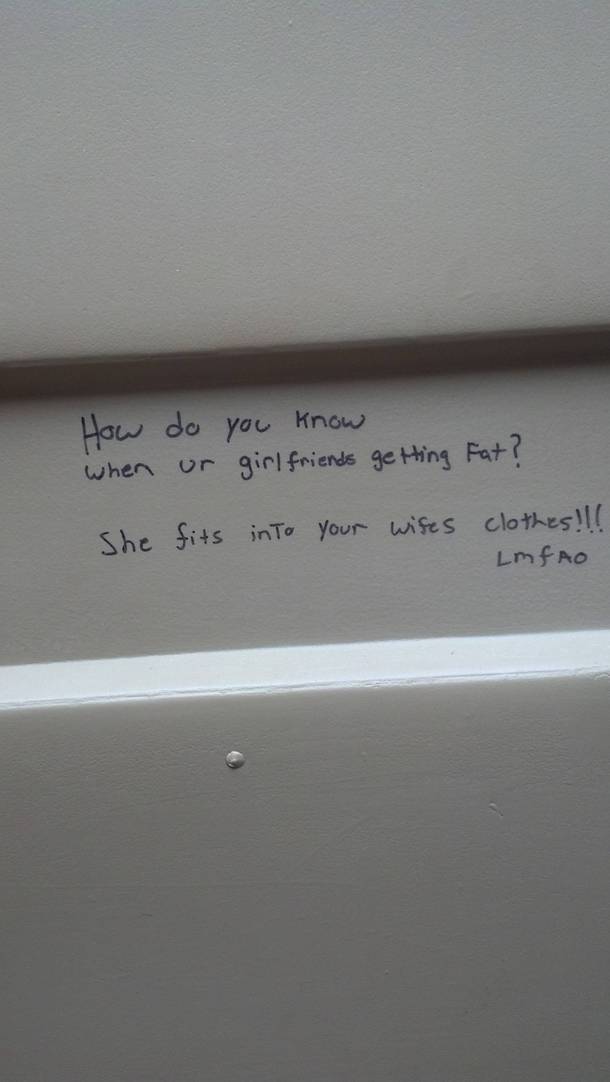 How do you know
when ur girlfriends getting Fat?
She fits inTo your wifes clothes!!!
LmfAO